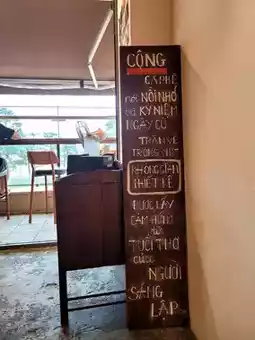 CỘNG
CÀ PHÊ
nơi NỖI NHỚ
và KỶ NIỆM
NGÀY CŨ
TRÀN VỀ
TRONG
KHÔNG GIAN
THIẾT KẾ
ĐƯỢC LẤY
CẢM HỨNG
TUỔI THƠ
CỦA
NGƯỜI
SÁNG
LẬP